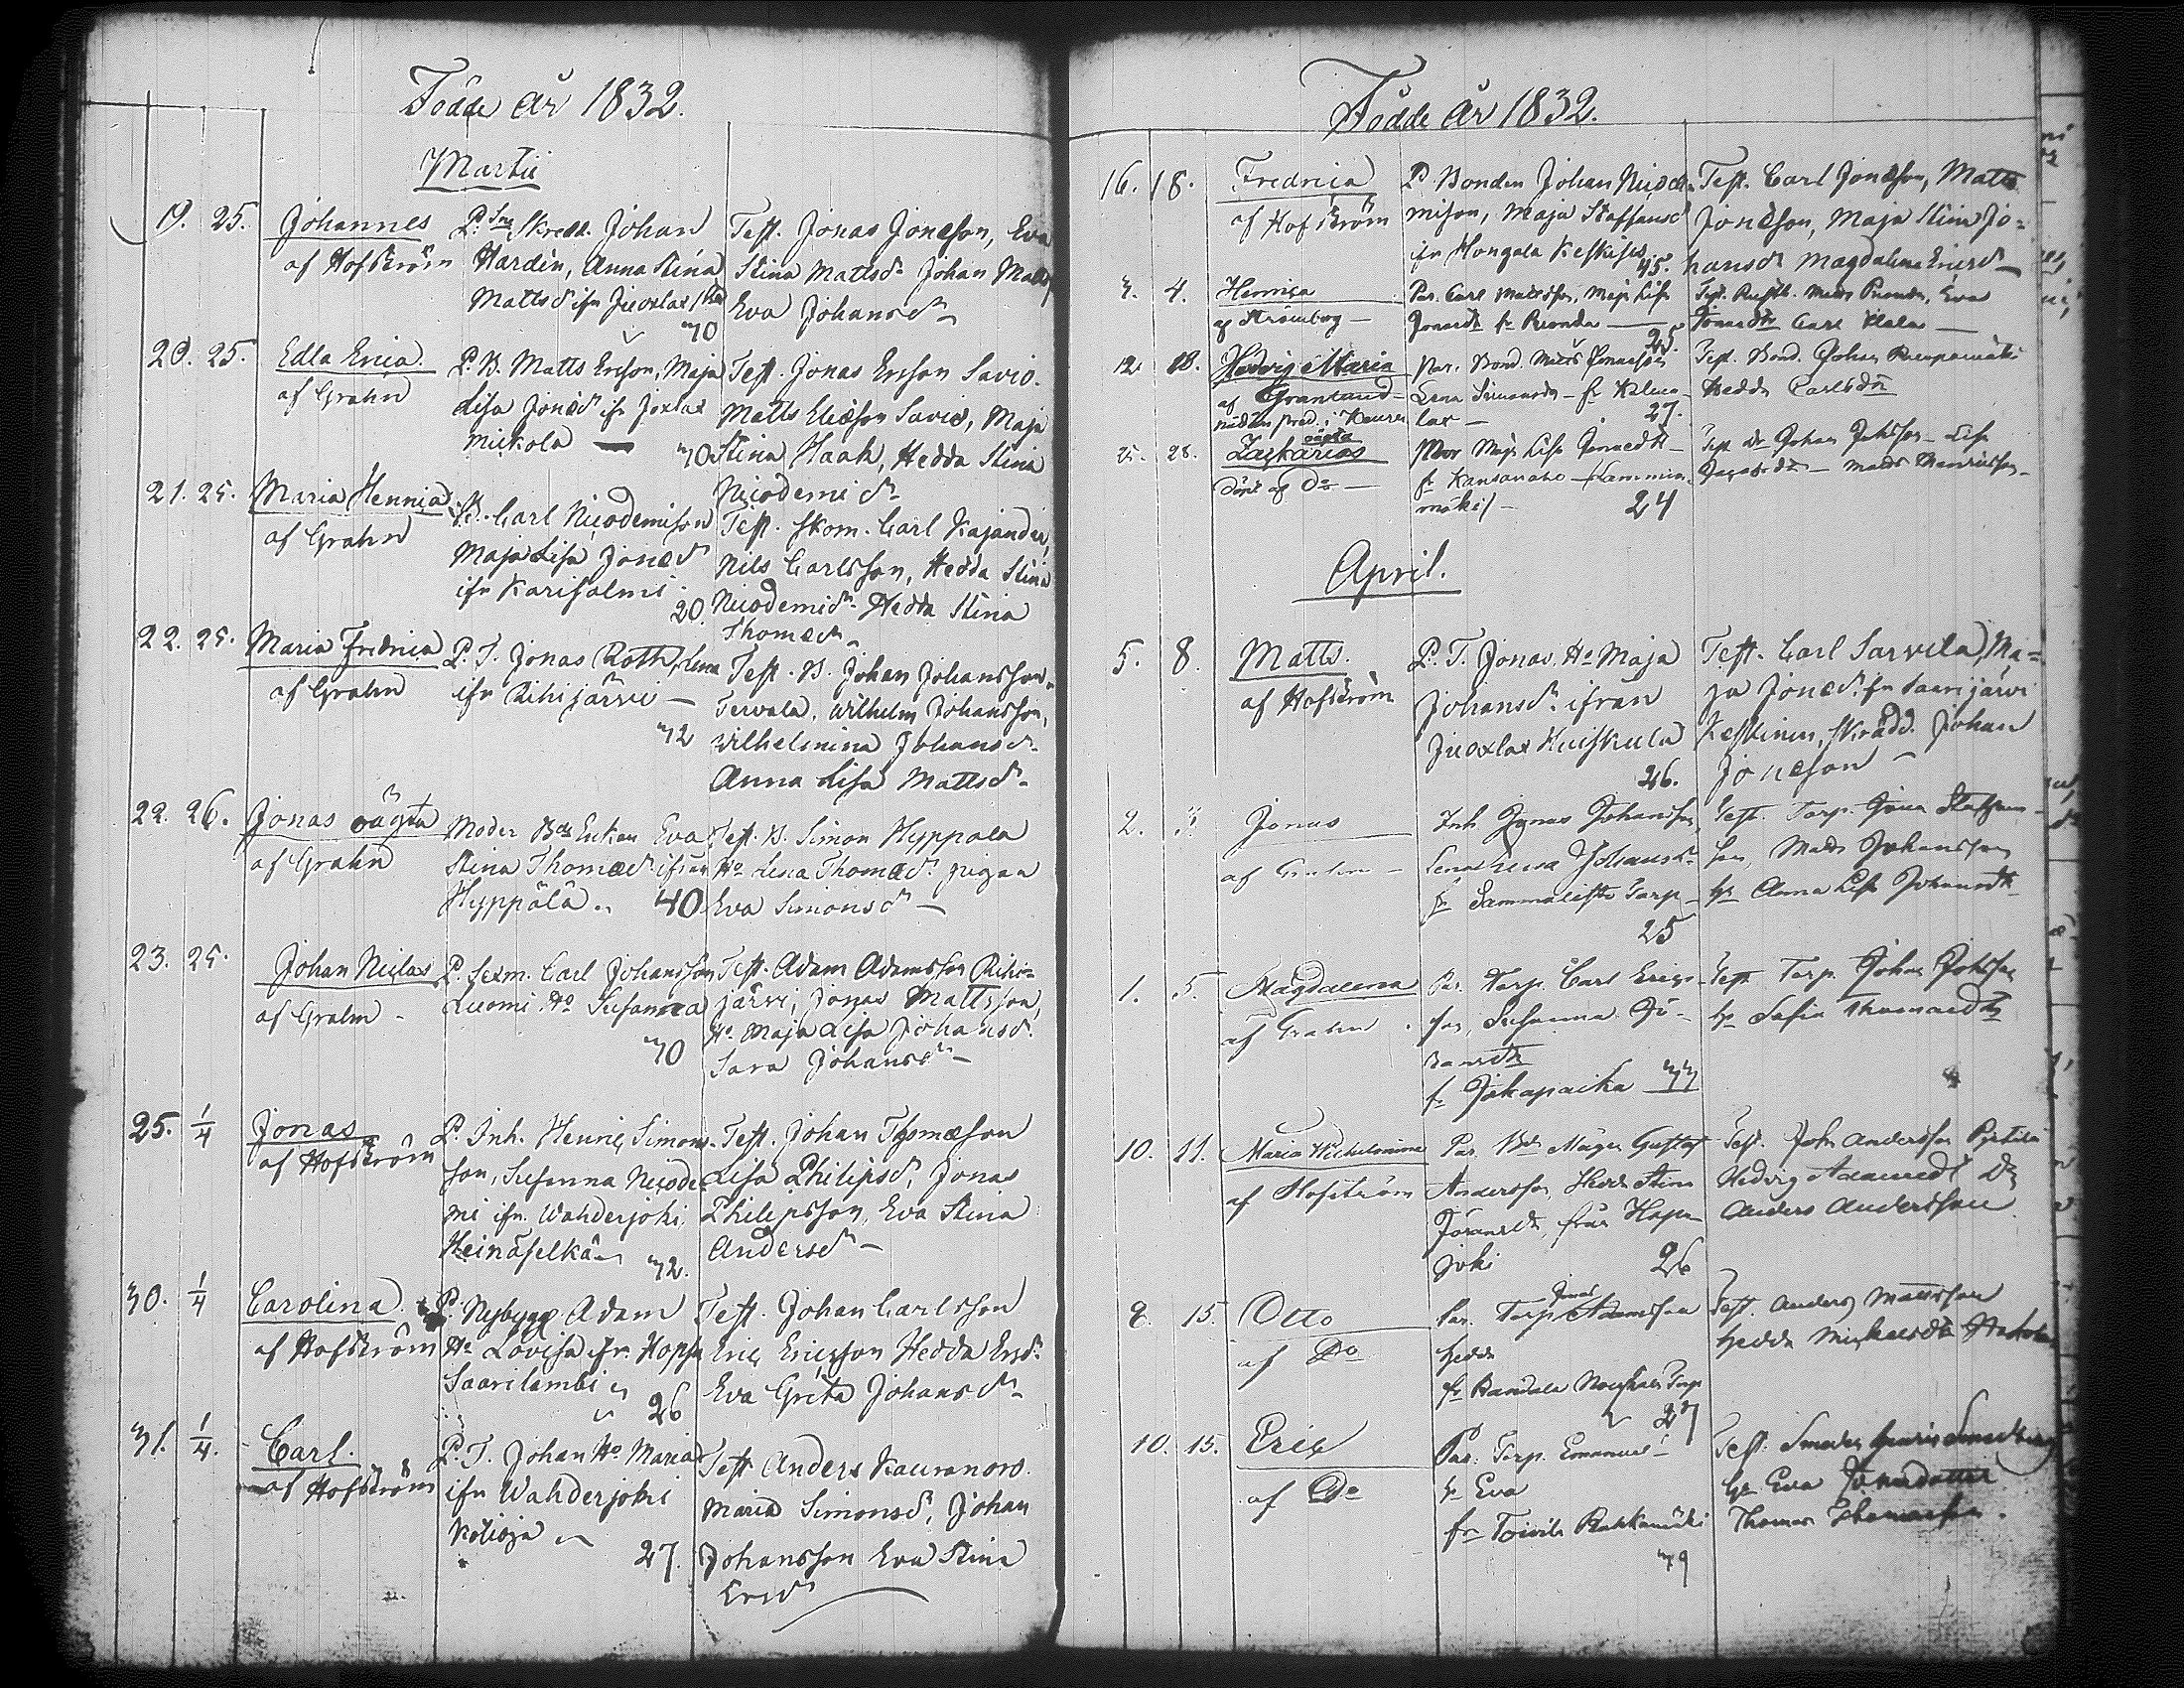 Födde år 1832.
Martii
19. 25. Johannes
af Hofström
P. Skredd. Johan
Hardén, Anna Stina
Mattsdr ifn Juoxlax
30
Test. Jonas Jonæson, Eva
Stina Mattsdr Johan Matts
Eva Johansdr
20. 25. Edla Erica.
af Grahn
P. B. Matts Ericson, Maja
Lisa Jonædr ifn Joxlax
Mickola
30
Test. Jonas Ericson Savio.
Matts Eliæson Savio, Maja
Stina Haak, Hedda Stina
Nicodemi dr
21. 25. Maria Henrica
af Grahn
B. Carl Nicodemison
Maja Lisa Jonædr
ifn Karisalmi
20.
Test. Skom. Carl Kajander,
Nils Carlsson, Hedda Stina
Nicodemidr Hedda Stina
Thomædr
22. 25. Maria Fredrica
af Grahn
P. T. Jonas Roth, Lena
ifn Rihijärvi
32
Test. B. Johan Johansson
Tervala, Wilhelm Johansson,
Wilhelmina Johansdr
Anna Lisa Mattsdr
22. 26. Jonas oägta
af Grahn
Moder Bde Enkan Eva
Stina Thomædr ifrån
Hyppälä 40
Test. B. Simon Hyppälä
Ho Lena Thomædr pigan
Eva Simonsdr
23. 25. Johan Niclas
af Grahn
P. Sexm. Carl Johansson
Luomi Ho Susanna
30
Test. Adam Adamsson Rihi-
järvi, Jonas Mattsson,
Ho Maja Lisa Johansdr
Sara Johansdr
25. 1/4 Jonas
af Hofström
P. Inh. Henric Simons-
son, Susanna Nicode-
mi ifn. Wahderjoki
Heinäselkä 32.
Test. Johan Thomæson
Lisa Philipsdr, Jonas
Philipsson, Eva Stina
Andersdr
30. 1/4 Carolina
af Hofström
P. Nybygg Adam
Ho Lovisa ifn. Hopsu
Saarilambi
26
Test. Johan Carlsson
Eric Ericsson Hedda Ersdr
Eva Greta Johansdr
31. 1/4. Carl.
af Hofström
P. T. Johan Ho Maria
ifn Wahderjoki
Kotioja
27.
Test Anders Kauranoro.
Maria Simonsdr, Johan
Johansson Eva Stina
Ersdr
Födde år 1832.
16. 18. Fredrica
af Hofström
P. Bonden Johan Nicode-
mison, Maja Staffansdr
ifn Hongala Keskises
45.
Test. Carl Jonæson, Matts
Jonæson, Maja Stina Jo-
hansdr Magdalena Ericsdr
3. 4. Henrica
af Stromberg
Par. Carl Mattsson, Maja Lisa
Jonasdr fr Ruonda
25.
Test. Matts Ruonda, Eva
Jonasdr Carl
12. 18. Hedvig Maria
af Granlund
Par. Bond. Matts
Lena Simonsdr fr
lax 27.
Test. Bond. Johan
Hedda Carlsdr
25. 28. Zackarias oägta
döpt af Do
Mor Maja Lisa Jonædtr
fr Kansanaho Lammin-
mäki 24
Test Dr Johan
Matts Henricsson
April.
5. 8. Matts.
af Hofström
P. T. Jonas. Ho Maja
Johansdr ifrån
Juoxlax Huiskula
26.
Test. Carl Sarvila, Ma-
ja Jonædr fn Saarijärvi
Keskinen, Skrädd. Johan
Jonæson
2. 3. Jonas
af Grahn
Inh Jonas Johansson,
Lena Johansdr
fr Torp
25
Test. Torp. Jonas
son, Matts Johansson
ho Anna Lisa Johansdtr
1. 5. Magdalena
af Grahn
Par. Torp. Carl Erics-
son, Susanna Jo-
hansdtr
fr Jokapaika 33
Test Torp. Johan
ho Sofia Thomasdtr
10. 11. Maria Wilhelmina
af Hofström
Par. Måg Gustaf
Andersson, Hedda Stina
Göransdtr, från Hapa-
joki 26
Test. Joh. Andersson
Hedvig Adamsdtr Do
Anders Andersson
8. 15. Otto
af Do
Par. Torp Jonas Adamsson
Hedda
fr Torp
27
Test. Anders Mattsson
Hedda Michelsdtr
10. 15. Eric
af Do
Par. Torp. Emanuel
ho Eva
fr Toivila
39
Test. Smeden
ho Eva Jonædotter
Thomas Thomasson.